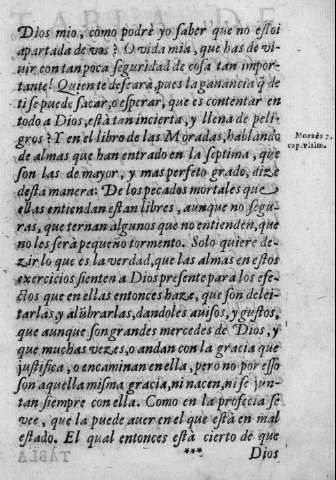 Dios mio, como podrè yo saber que no estoi
apartada de vos? O vida mia, que has de vi-
uir con tan poca seguridad de cosa tan impor-
tante! Quien te dessearà, pues la ganancia q̃ de
ti se puede sacar, o esperar, que es contentar en
todo a Dios, està tan incierta, y llena de peli-
gros? Y en el libro de las Moradas, hablando
de almas que han entrado en la septima, que
son las de mayor, y mas perfeto grado, dize
desta manera: De los pecados mortales que
ellas entiendan estan libres, aunque no segu-
ras, que ternan algunos que no entienden, que
no les serà pequeño tormento. Solo quiere de-
zir lo que es la verdad, que las almas en estos
exercicios sienten a Dios presente para los efe-
ctos que en ellas entonces haze, que son delei-
tarlas, y alũbrarlas, dandoles auisos, y gustos,
que aunque son grandes mercedes de Dios, y
que muchas vezes, o andan con la gracia que
justifica, o encaminan en ella, pero no por esso
son aquella misma gracia, ni nacen, ni se jun-
tan siempre con ella. Como en la profecia se
vee, que la puede auer en el que està en mal
estado. El qual entonces està cierto de que
*** Dios
Morada 7.
cap. vltim.